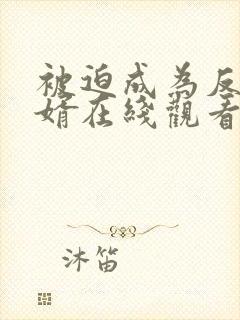 被迫成為反
婿在綫觀看
沐笛